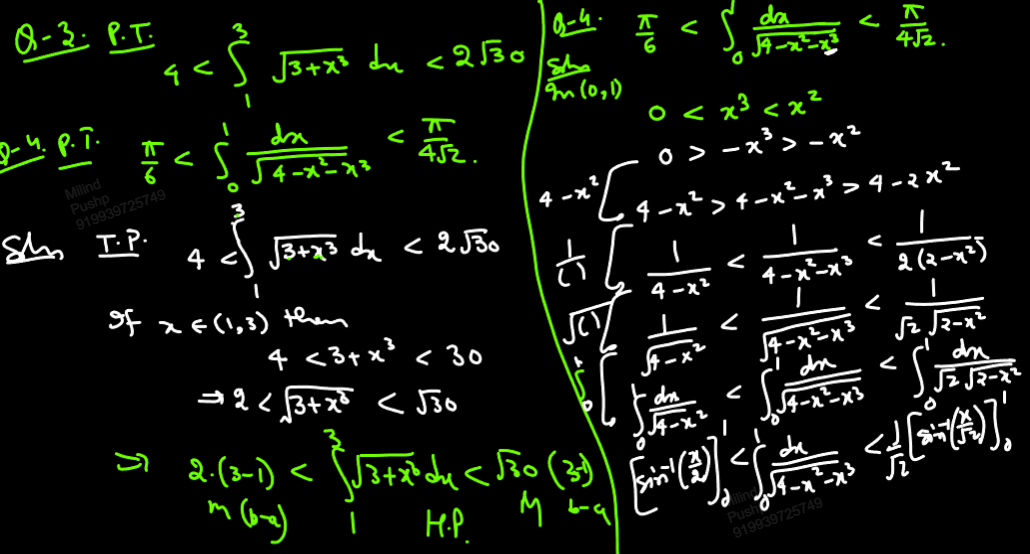 Q-3. P.T. 4 < ∫₁³ √(3+x³) dx < 2√30
Q-4. P.T. π/6 < ∫₀¹ dx/√(4-x²-x³) < π/(4√2).
Milind
Pushp
919939725749
Soln T.P. 4 < ∫₁³ √(3+x³) dx < 2√30
If x ∈ (1,3) then
4 < 3+x³ < 30
⇒ 2 < √(3+x³) < √30
⇒ 2·(3-1) < ∫₁³ √(3+x³) dx < √30 (3-1)
m(b-a) H.P. M b-a
Q-4. π/6 < ∫₀¹ dx/√(4-x²-x³) < π/(4√2).
Soln
In (0,1)
0 < x³ < x²
0 > -x³ > -x²
4-x² [ 4-x² > 4-x²-x³ > 4-2x²
1/( ) [ 1/(4-x²) < 1/(4-x²-x³) < 1/(2(2-x²))
√( ) [ 1/√(4-x²) < 1/√(4-x²-x³) < 1/(√2 √(2-x²))
∫₀¹ [ ∫₀¹ dx/√(4-x²) < ∫₀¹ dx/√(4-x²-x³) < ∫₀¹ dx/(√2 √(2-x²))
[sin⁻¹(x/2)]₀¹ < ∫₀¹ dx/√(4-x²-x³) < 1/√2 [sin⁻¹(x/√2)]₀¹
Milind
Pushp
919939725749